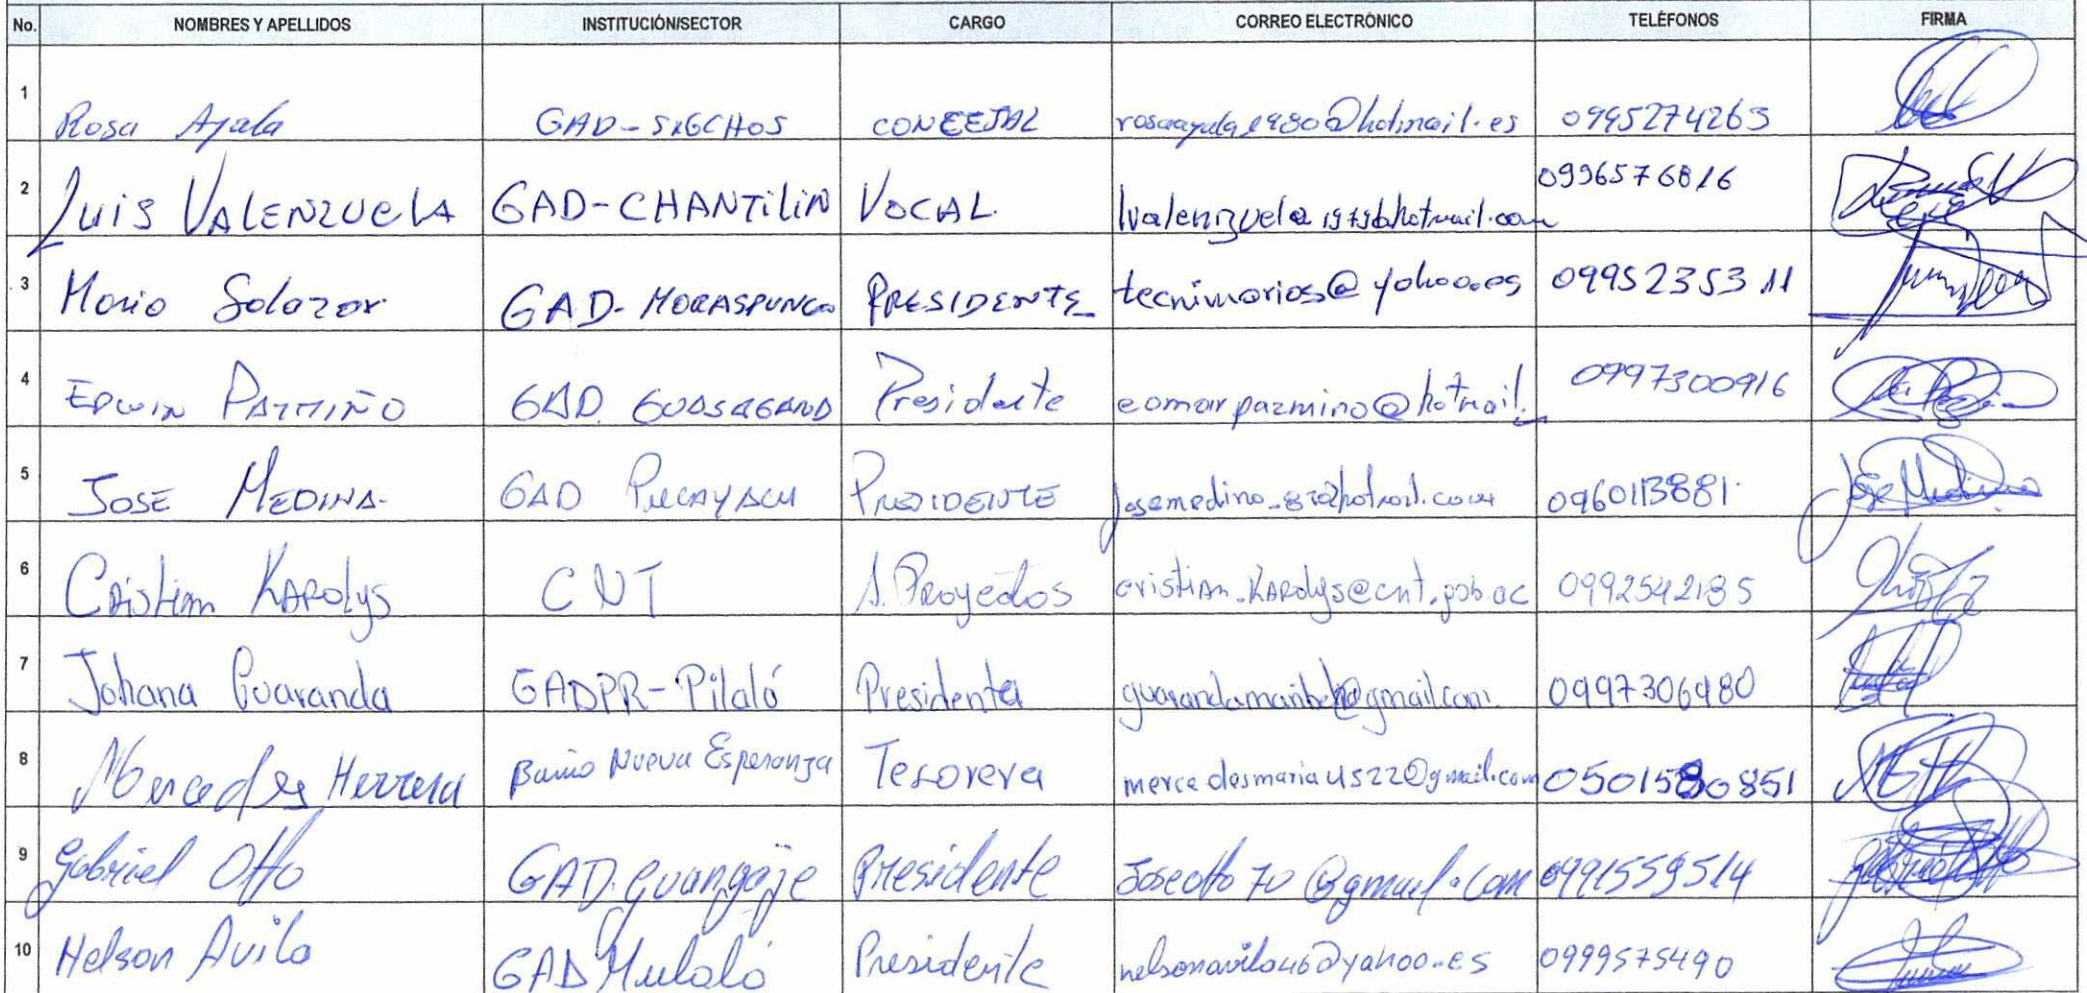 No. NOMBRES Y APELLIDOS INSTITUCIÓN/SECTOR CARGO CORREO ELECTRÓNICO TELÉFONOS FIRMA
1 Rosa Ayala GAD-SIGCHOS CONCEJAL rosaayala1980@hotmail.es 0995274263
2 Luis VALENZUELA GAD-CHANTILIN VOCAL lvalenzuela1979@hotmail.com 0996576816
3 Mario Salazar GAD-MORASPUNGO PRESIDENTE tecnimarios@yahoo.es 0995235311
4 EDWIN PAZMIÑO GAD GUASAGANDA Presidente eomarpazmino@hotmail. 0997300916
5 JOSE MEDINA GAD PUCAYACU PRESIDENTE josemedina_87@hotmail.com 0960113881
6 Cristian KAROLYS CNT A. Proyectos cristian.karolys@cnt.gob.ec 0992542185
7 Johana Guaranda GADPR-Pilaló Presidenta guarandamaribel@gmail.com 0997306980
8 Mercedes Herrera Barrio Nueva Esperanza Tesorera mercedesmaria4522@gmail.com 0501580851
9 Gabriel Otto GAD.Guangaje Presidente Joseotto70@gmail.com 0991559514
10 Nelson Avila GAD Mulaló Presidente nelsonavila46@yahoo.es 0999575490